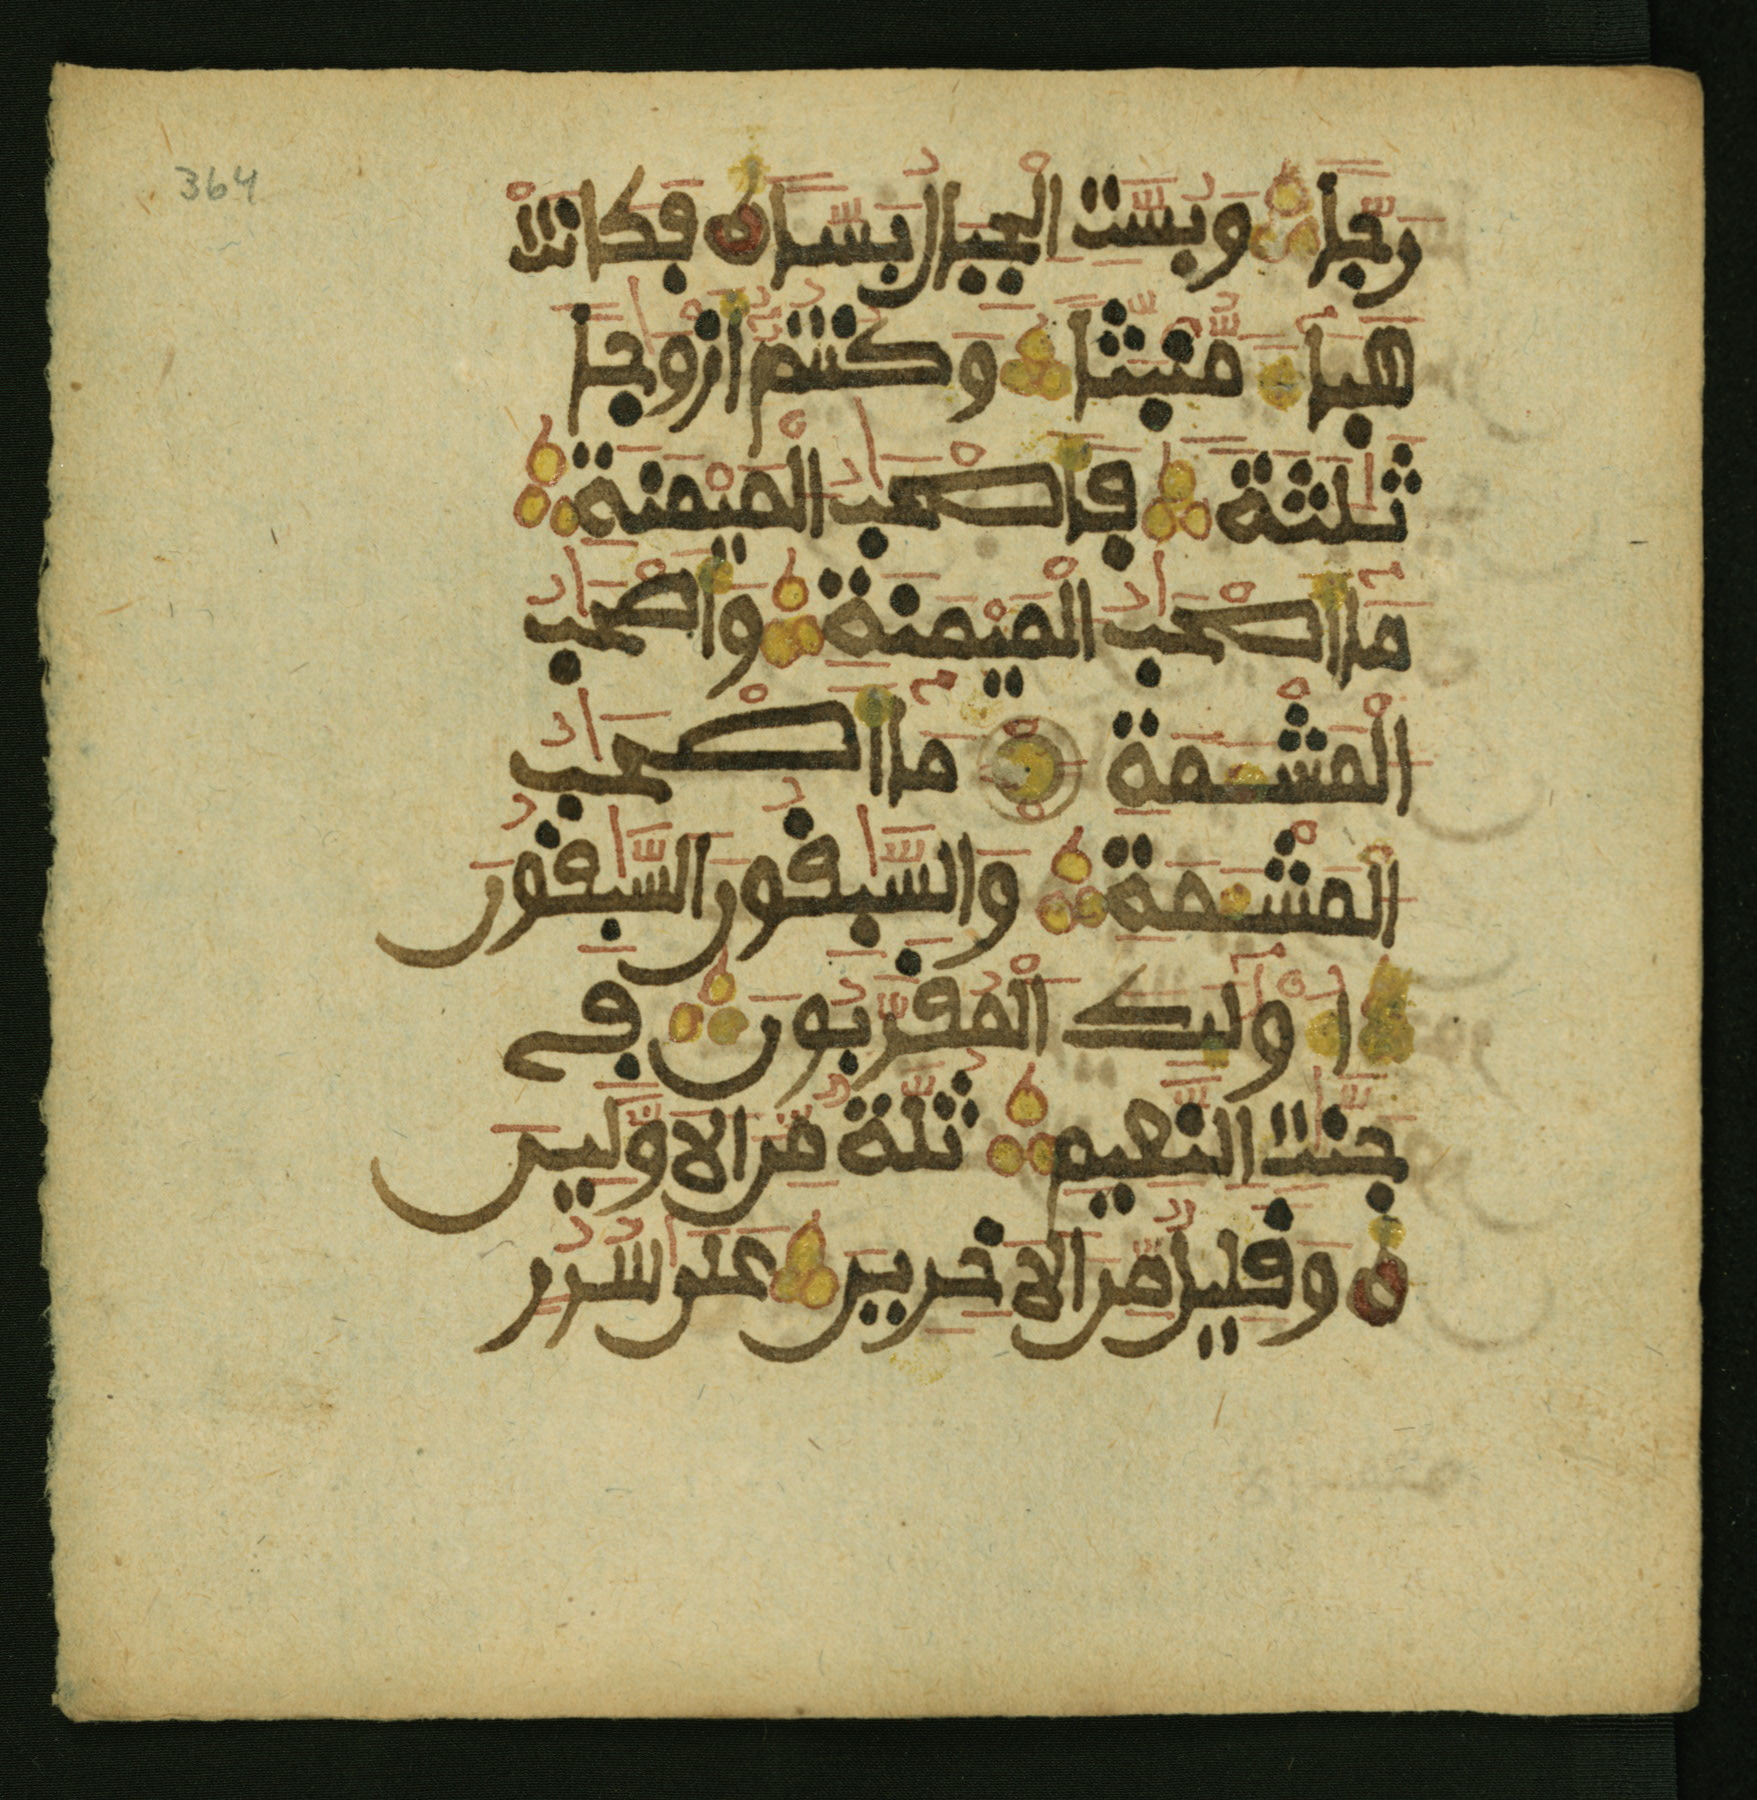 364
رَجّاً وَبُسَّتِ الْجِبَالُ بَسّاً فَكَانَتْ
هَبَآءً مُّنۢبَثّاً وَكُنتُمُۥٓ أَزْوَٰجاً
ثَلَٰثَةً فَأَصْحَٰبُ الْمَيْمَنَةِ
مَآ أَصْحَٰبُ الْمَيْمَنَةِ وَأَصْحَٰبُ
الْمَشْـَٔمَةِ مَآ أَصْحَٰبُ
الْمَشْـَٔمَةِ وَالسَّٰبِقُونَ السَّٰبِقُونَ
أُوْلَٰٓئِكَ الْمُقَرَّبُونَ فِے
جَنَّٰتِ النَّعِيمِ ثُلَّةٌ مِّنَ الَاوَّلِينَ
وَقَلِيلٌ مِّنَ الَاخِرِينَ عَلَىٰ سُرُرٍ